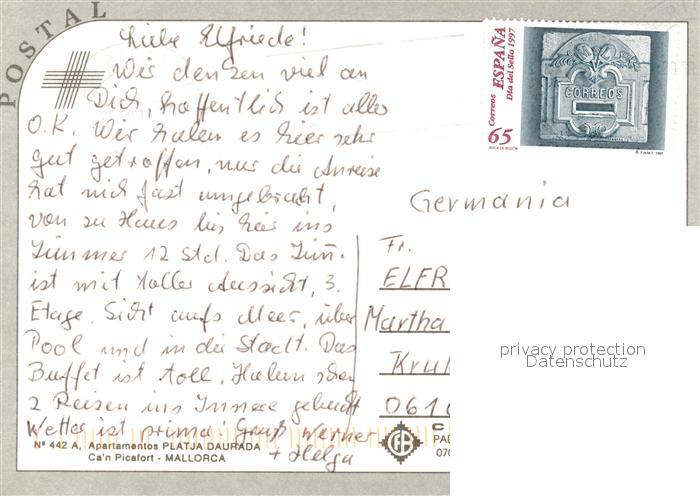 POSTAL
Liebe Elfriede!
Wir denken viel an
Dich, hoffentlich ist alles
O.K. Wir haben es hier sehr
gut getroffen, nur die Anreise
hat mich fast umgebracht,
von zu Haus bis hier ins
Zimmer 12 Std. Das Zim.
ist mit toller Aussicht, 3.
Etage. Sicht aufs Meer, über
Pool und in die Stadt. Das
Buffet ist toll. Haben schon
2 Reisen ins Innere gebucht
Wetter ist prima Gruß Werner
+ Helga
Nº 442 A, Apartamentos PLATJA DAURADA
Ca'n Picafort - MALLORCA
Correos
ESPAÑA
Día del Sello 1997
65
CORREOS
Germania
Fr.
ELFR
Martha
Kru
0610
privacy protection
Datenschutz
PAD
070